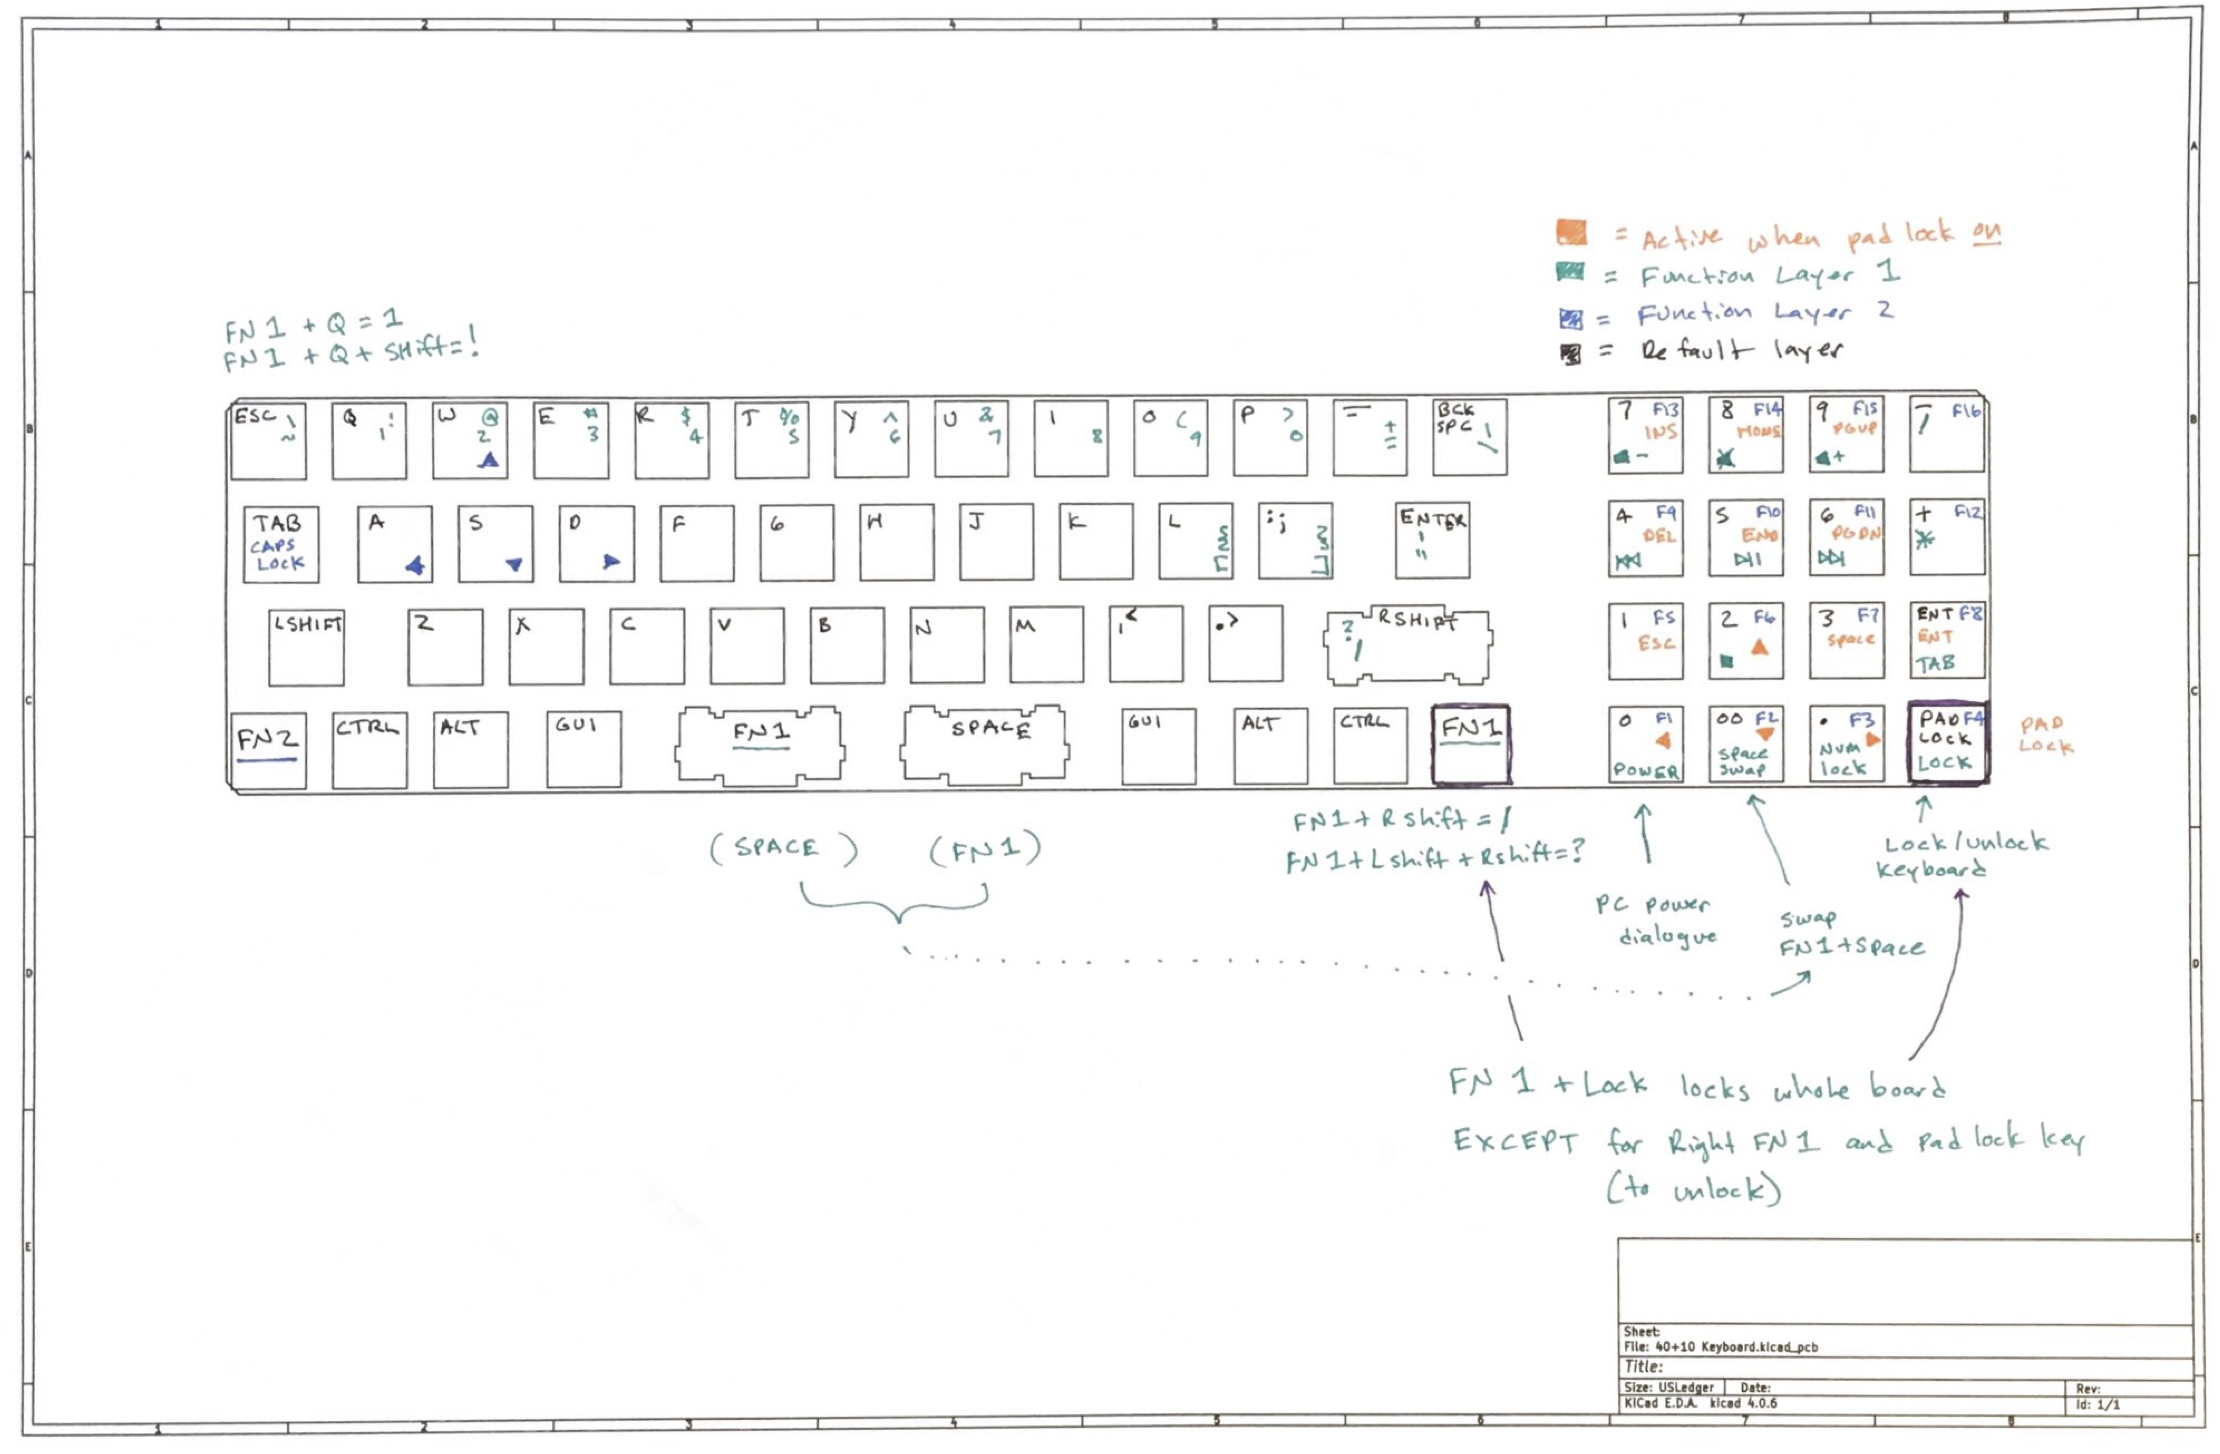 1 2 3 4 5 6 7 8
A A
= Active when pad lock on
= Function Layer 1
= Function Layer 2
= Default layer
FN 1 + Q = 1
FN 1 + Q + Shift = !
B B
ESC \ ~
Q ! 1
W @ 2 ▲
E # 3
R $ 4
T % 5
Y ^ 6
U & 7
I 8
O ( 9
P > 0
– + =
BCK SPC | \
7 F13 INS ◀ -
8 F14 HOME
9 F15 PGUP ◀ +
- F16 /
TAB CAPS LOCK
A ◀
S ▼
D ▶
F
G
H
J
K
L { [
: ; } ]
ENTER ' "
4 F9 DEL ⏮
5 F10 END ▷||
6 F11 PGDN ⏭
+ F12 *
LSHIFT
Z
X
C
V
B
N
M
, <
. >
? / RSHIFT
1 F5 ESC
2 F6 ▲ ■
3 F7 Space
ENT F8 ENT TAB
C C
FN2
CTRL
ALT
GUI
FN1
SPACE
GUI
ALT
CTRL
FN1
0 F1 ◀ POWER
00 F2 ▼ Space Swap
. F3 ▶ Num lock
PAD F4 LOCK LOCK
PAD
LOCK
(SPACE) (FN1)
FN1 + Rshift = /
FN1 + Lshift + Rshift = ?
PC power
dialogue
Swap
FN1 + Space
Lock/unlock
keyboard
D D
FN 1 + Lock locks whole board
EXCEPT for Right FN1 and Pad lock key
(to unlock)
E E
Sheet:
File: 40+10 Keyboard.kicad_pcb
Title:
Size: USLedger Date: Rev:
KiCad E.D.A. kicad 4.0.6 Id: 1/1
1 2 3 4 5 6 7 8